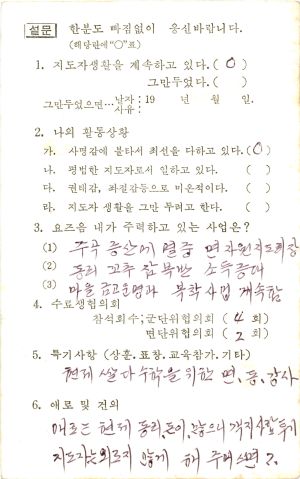 설문 한분도 빠짐없이 응신바랍니다.
(해당란에 "○"표)
1. 지도자생활을 계속하고 있다. ( ○ )
그만두었다. ( )
그만두었으면… 날자: 19 년 월 일.
사유:
2. 나의 활동상황
가. 사명감에 불타서 최선을 다하고 있다. (○)
나. 평범한 지도자로서 일하고 있다. ( )
다. 권태감, 좌절감등으로 미온적이다. ( )
라. 지도자 생활을 그만 두려고 한다. ( )
3. 요즈음 내가 주력하고 있는 사업은?
(1) 주곡 증산에 열중 면 자원지도회장
(2) 동리 고추 소득증대
(3) 마을금고운영과 복합사업 계속함
4. 수료생협의회
참석회수; 군단위협의회 ( 4 회)
면단위협의회 ( 2 회)
5. 특기사항 (상훈. 표창. 교육참가. 기타)
현제 쌀 다수확을 위한 면, 동, 강사
6. 애로 및 건의
애로는 현제 동리, 돈이, 많으니
지도자는 외르지 않게 해 주며는?